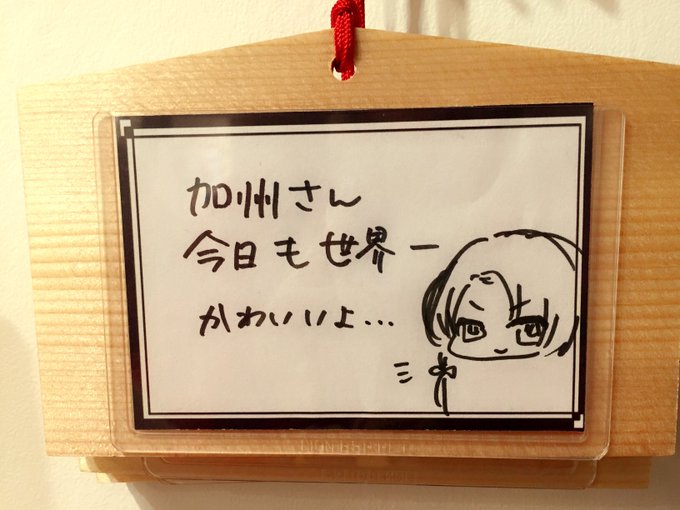 加州さん
今日も世界一
かわいいよ…